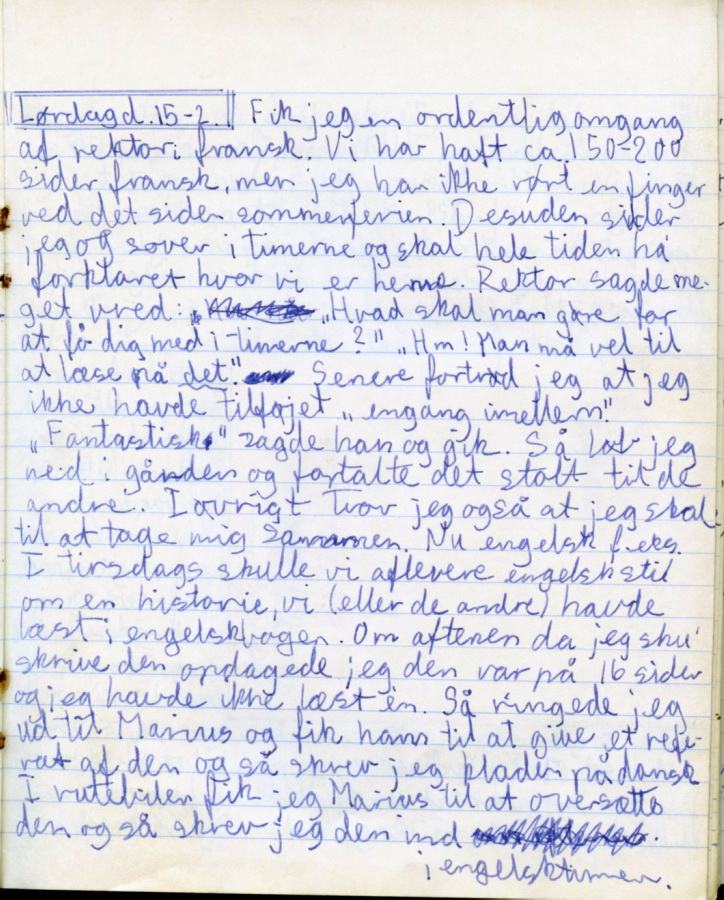 Lørdag d. 15-2. Fik jeg en ordentlig omgang
af rektor i fransk. Vi har haft ca. 150-200
sider fransk, men jeg har ikke rørt en finger
ved det siden sommerferien. Desuden sider
jeg og sover i timerne og skal hele tiden ha
forklaret hvor vi er henne. Rektor sagde me-
get vred: „Hvad skal man gøre for
at få dig med i timerne?" „Hm! Man må vel til
at læse på det." Senere fortrød jeg at jeg
ikke havde tilføjet „engang imellem!"
„Fantastisk" sagde han og gik. Så løb jeg
ned i gården og fortalte det stolt til de
andre. I øvrigt tror jeg også at jeg skal
til at tage mig sammen. Nu engelsk f.eks.
I tirsdags skulle vi aflevere engelsk stil
om en historie, vi (eller de andre) havde
læst i engelskbogen. Om aftenen da jeg sku'
skrive den opdagede jeg den var på 16 sider
og jeg havde ikke læst én. Så ringede jeg
ud til Marius og fik ham til at give et refe-
rat af den og så skrev jeg kladen på dansk
I rutebilen fik jeg Marius til at oversætte
den og så skrev jeg den ind
i engelsktimen.